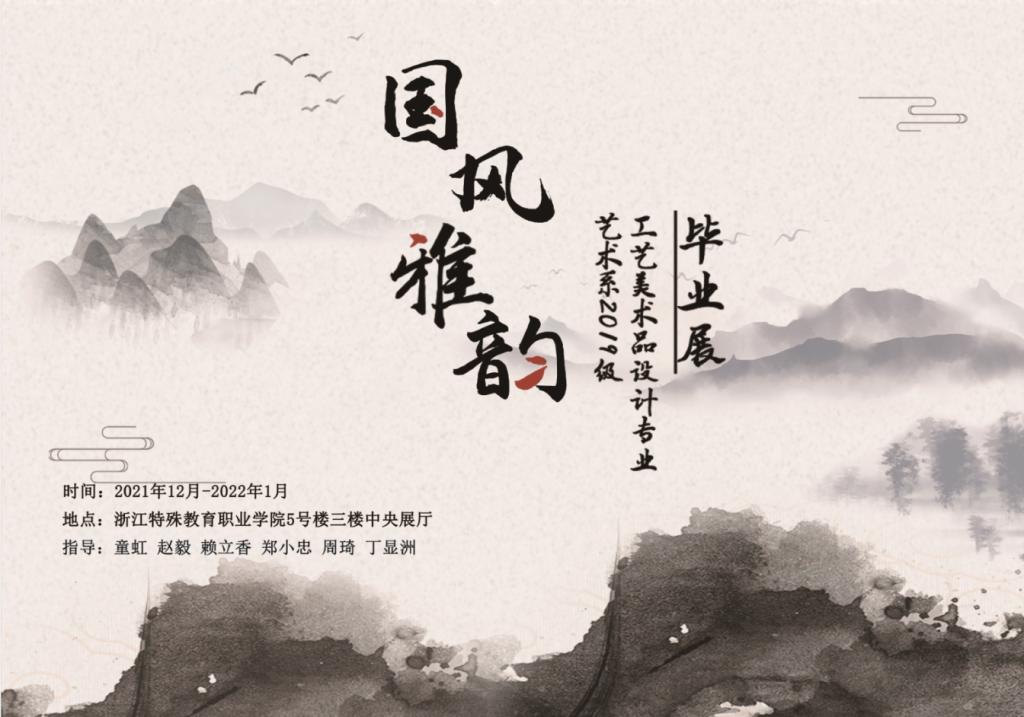 国风雅韵
毕业展
工艺美术品设计专业
艺术系2019级
时间：2021年12月-2022年1月
地点：浙江特殊教育职业学院5号楼三楼中央展厅
指导：童虹 赵毅 赖立香 郑小忠 周琦 丁显洲